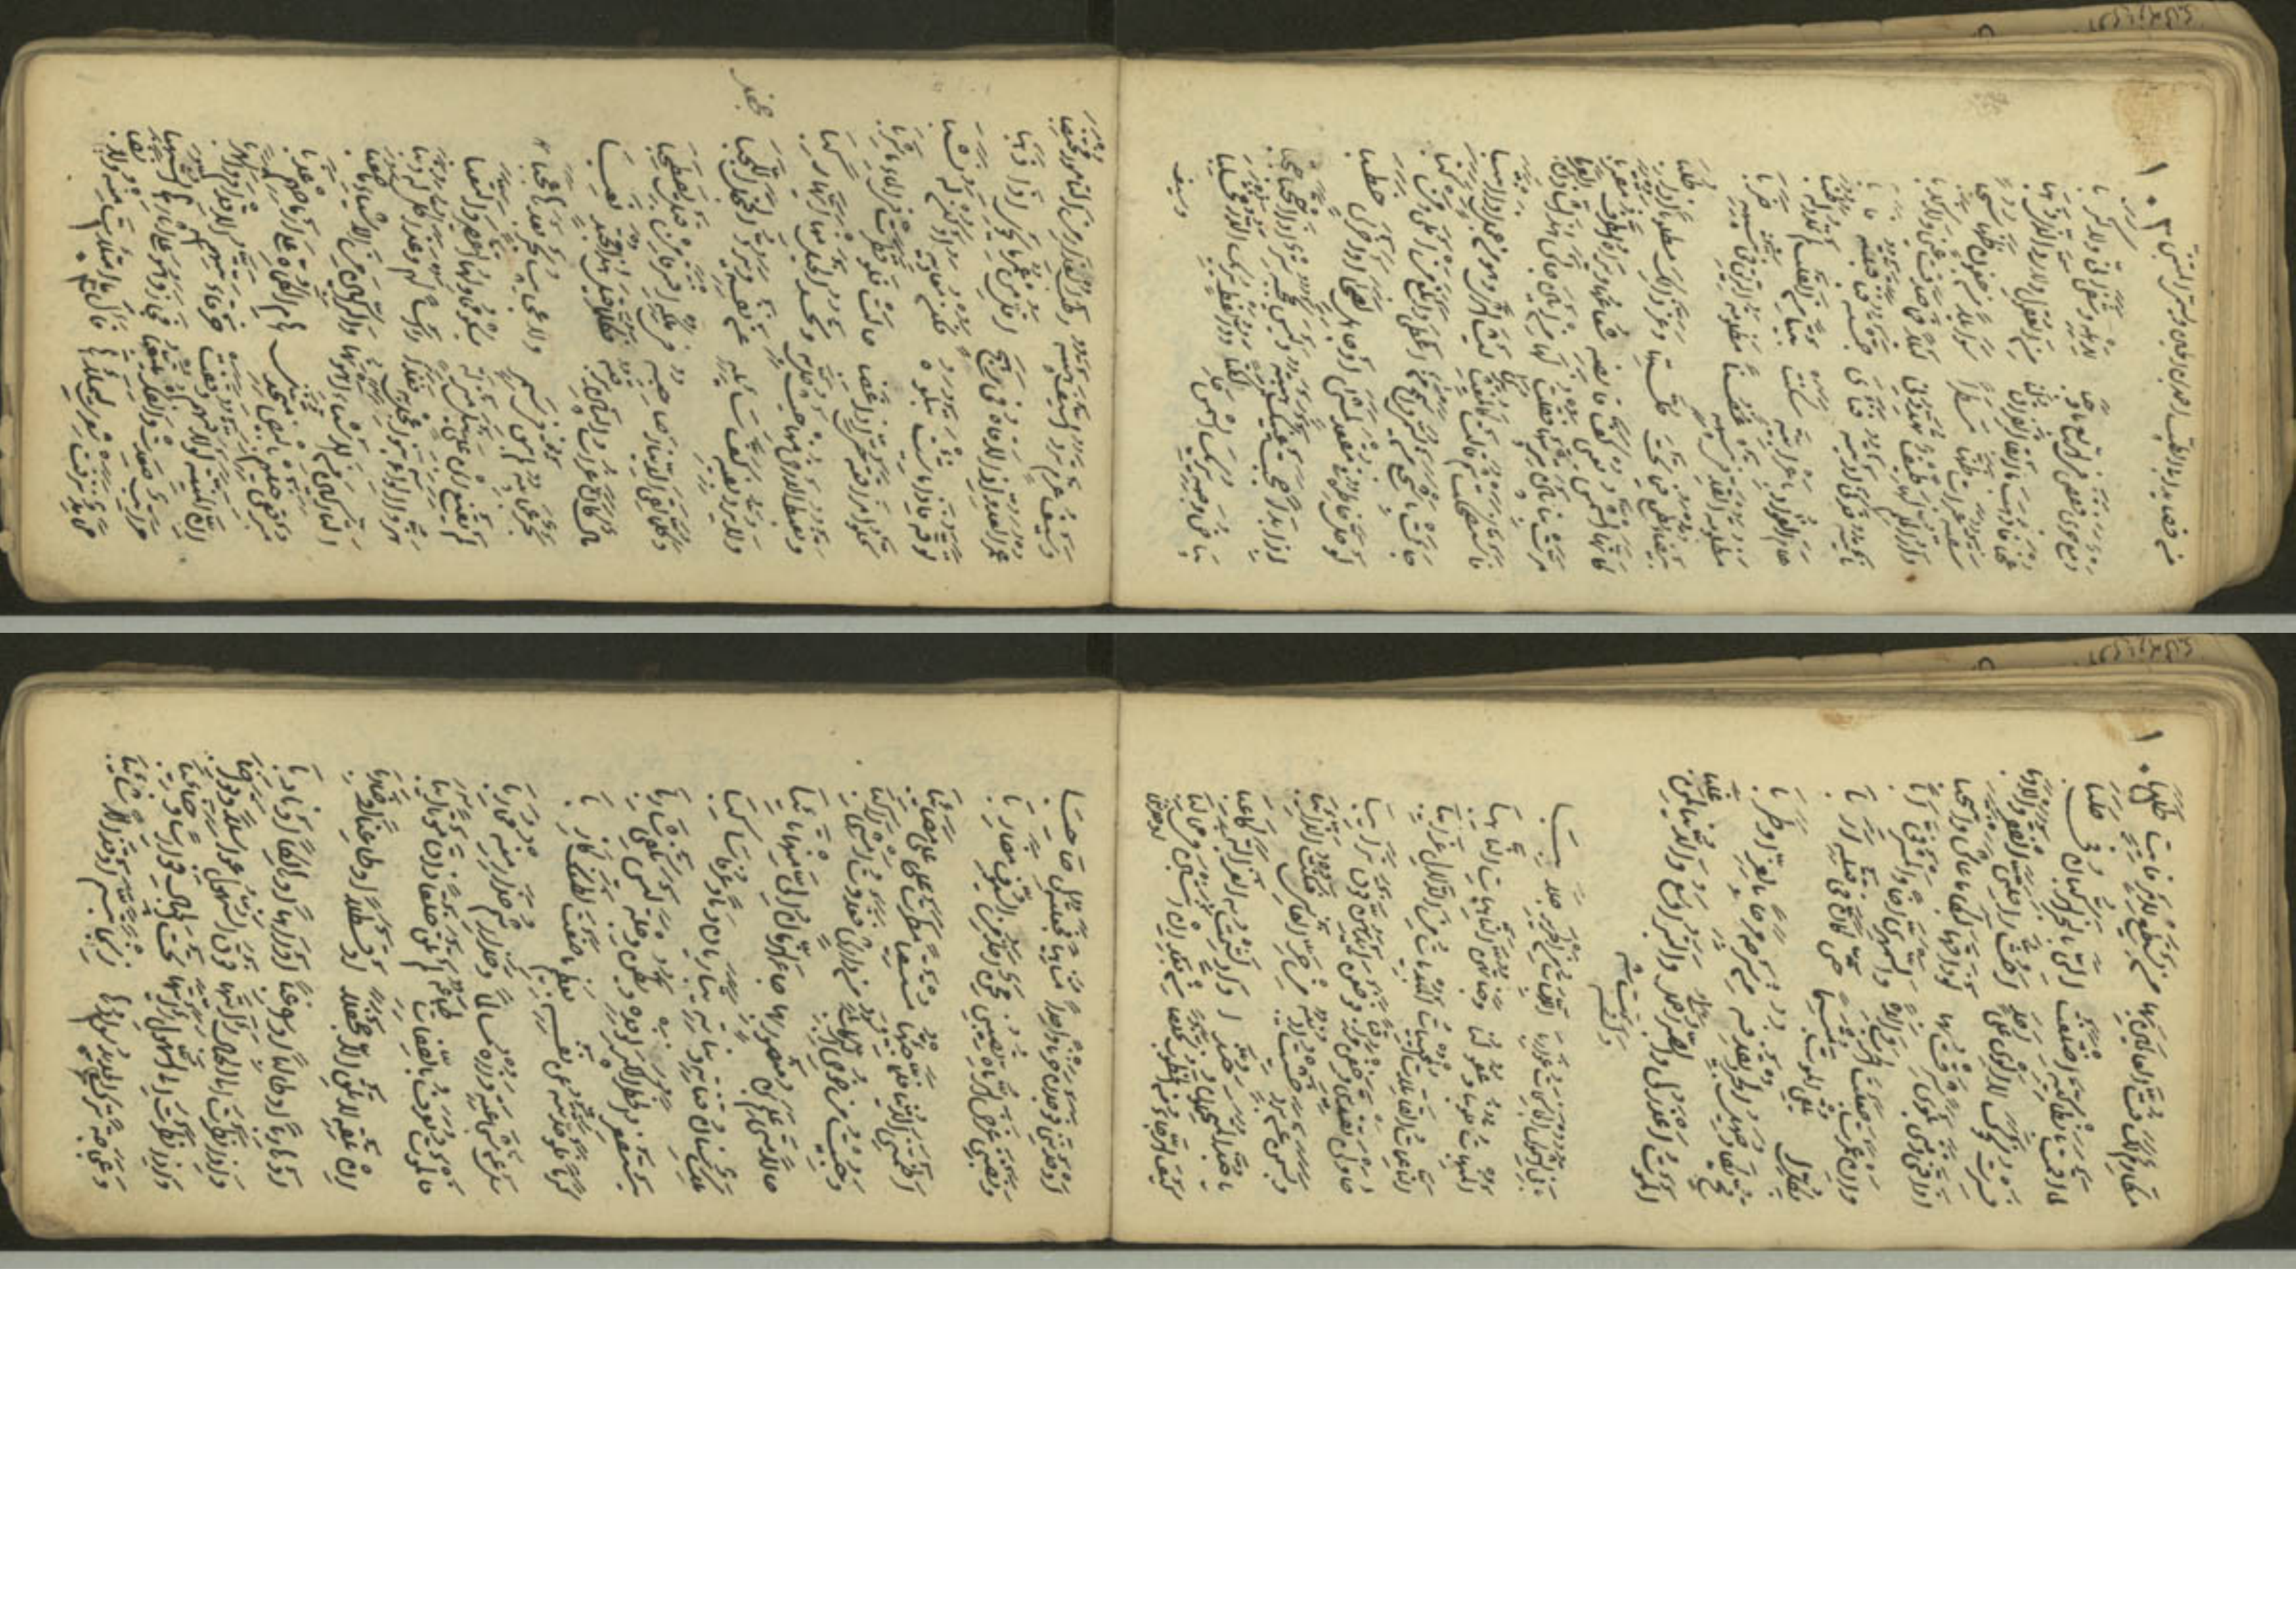 من قصايد ابي الطيب احمد بن الحسين المتنبي
دمع جرى فقضى في الربع ما وجبا لاهله وشفى انى ولا كربا
عجنا فاذهب ما ابقى الفراق لنا من العقول وما رد الذي ذهبا
سقيته عبرات ظنها مطرا سوائلا من جفون ظنها سحبا
دار الملم لها طيف تهددني ليلا فما صدقت عيني ولا كذبا
ناءيته فدنا ادنيته فنأى جمشته فنبا قبلته فابى
هام الفؤاد باعرابية سكنت بيتا من القلب لم تمدد له طنبا
مظلومة القد في تشبيهه غصنا مظلومة الريق في تشبيهه ضربا
بيضاء تطمع فيما تحت حلتها وعز ذلك مطلوبا اذا طلبا
كانها الشمس يعيي كف قابضه شعاعها ويراه الطرف مقتربا
مرت بنا بين تربيها فقلت لها من اين جانس هذا الشادن العربا
فاستضحكت ثم قالت كالمغيث يرى ليث الشرى وهو من عجل اذا انتسبا
جاءت باشجع من يسمى واسمح من اعطى وابلغ من املى ومن كتبا
لو حل خاطره في مقعد لمشى او جاهل لصحا او اخرس خطبا
اذا بدا حجبت عينيك هيبته وليس يحجبه ستر اذا احتجبا
بياض وجه يريك الشمس حالكة ودر لفظ يريك الدر مخشلبا
وسيف
وسيف عزم ترد السيف هبته رطب الغرار من التامور مختضبا
عمر العدو اذا لاقاه في رهج اقل من عمر ما يحوي اذا وهبا
توقه فاذا ما شئت تبلوه فكن معاديه او كن له نشبا
تحلو مذاقته حتى اذا غضبا حالت فلو قطرت في البحر ما شربا
وتغبط الارض منها حيث حل به وتحسد الخيل منها ايها ركبا
ولا يرد بفيه كف سائله عن نفسه ويرد الجحفل اللجبا
وكلما لقي الدينار صاحبه في ملكه افترقا من قبل يصطحبا
مال كان غراب البين يرقبه فكلما قيل هذا مجتد نعبا
بحر عجائبه لم تبق في سمر ولا عجائب بحر بعدها عجبا
لا يقنع ابن علي نيل منزلة يشكو محاولها التقصير والتعبا
هز اللواء بنو عجل به فغدا راسا لهم وغدا كل لهم ذنبا
التاركين من الاشياء اهونها والراكبين من الاشياء ما صعبا
مبرقعي خيلهم بالبيض متخذي هام الكماة على ارماحهم عذبا
ان المنية لو لاقتهم وقفت خرقاء تتهم الاقدام والهربا
مراتب صعدت والفكر يتبعها فجاز وهو على آثارها الشهبا
محامد نزفت شعري ليملأها فآل ما امتلأت منه ولا نضبا
مكارم لك فت العالمين بها من يستطيع لامر فائت طلبا
لما اقمت بانطاكية اختلفت الي بالخبر الركبان في حلبا
فسرت نحوك لا الوي على احد احث راحلتي الفقر والادبا
اذاقني زمني بلوى شرقت بها لو ذاقها لبكى ما عاش وانتحبا
وان عمرت جعلت الحرب والدة والسمهري اخا والمشرفي ابا
بكل اشعث يلقى الموت مبتسما حتى كان له في قتله اربا
قح يكاد صهيل الخيل يقذفه من سرجه مرحا بالعز او طربا
الموت اعذر لي والصبر اجمل بي والبر اوسع والدنيا لمن غلبا
بابي الشموس الجانحات غواربا اللابسات من الحرير جلاببا
المنهبات قلوبنا وعقولنا وجناتهن الناهبات الناهبا
الناعمات القاتلات المحييات المبديات من الدلال غرائبا
حاولن تفديتي وخفن مراقبا فوضعن ايديهن فوق ترائبا
وبسمن عن برد خشيت اذيبه من حر انفاسي فكنت الذائبا
يا حبذا المتحملون وحبذا واد لثمت به الغزالة كاعبا
كيف الرجاء من الخطوب تخلصا من بعد ما انشبن في مخالبا
اوحدنني
اوحدنني ووجدن حزنا واحدا متناهيا فجعلنه لي صاحبا
ونصبنني غرض الرماة تصيبني محن احد من السيوف مضاربا
اظمتني الدنيا فلما جئتها مستسقيا مطرت علي مصائبا
وحبيت من خوص الركاب باسود من دارش فغدوت امشي راكبا
حالا متى علم ابن منصور بها جاء الزمان الي منها تائبا
ملك سنان قناته وبنانه يتباريان دما وعرفا ساكبا
يستصغر الخطر الكبير لوفده ويظن دجلة ليس تكفي شاربا
كرما فلو حدثته عن نفسه بعظيم ما صنعت لظنك كاذبا
سل عن شجاعته وزره مسالما وحذار ثم حذار منه محاربا
فالموت تعرف بالصفات طباعه لم تلق خلقا ذاق موتا آيبا
ان تلقه لا تلق الا جحفلا او قسطلا او طاعنا او ضاربا
او هاربا او طالبا او راغبا او راهبا او هالكا او نادبا
واذا نظرت الى الجبال رايتها فوق السهول عواسلا وقواضبا
واذا نظرت الى السهول رايتها تحت الجبال فوارسا وجنائبا
وعجاجة ترك الحديد سوادها زنجا تبسم او قذالا شائبا